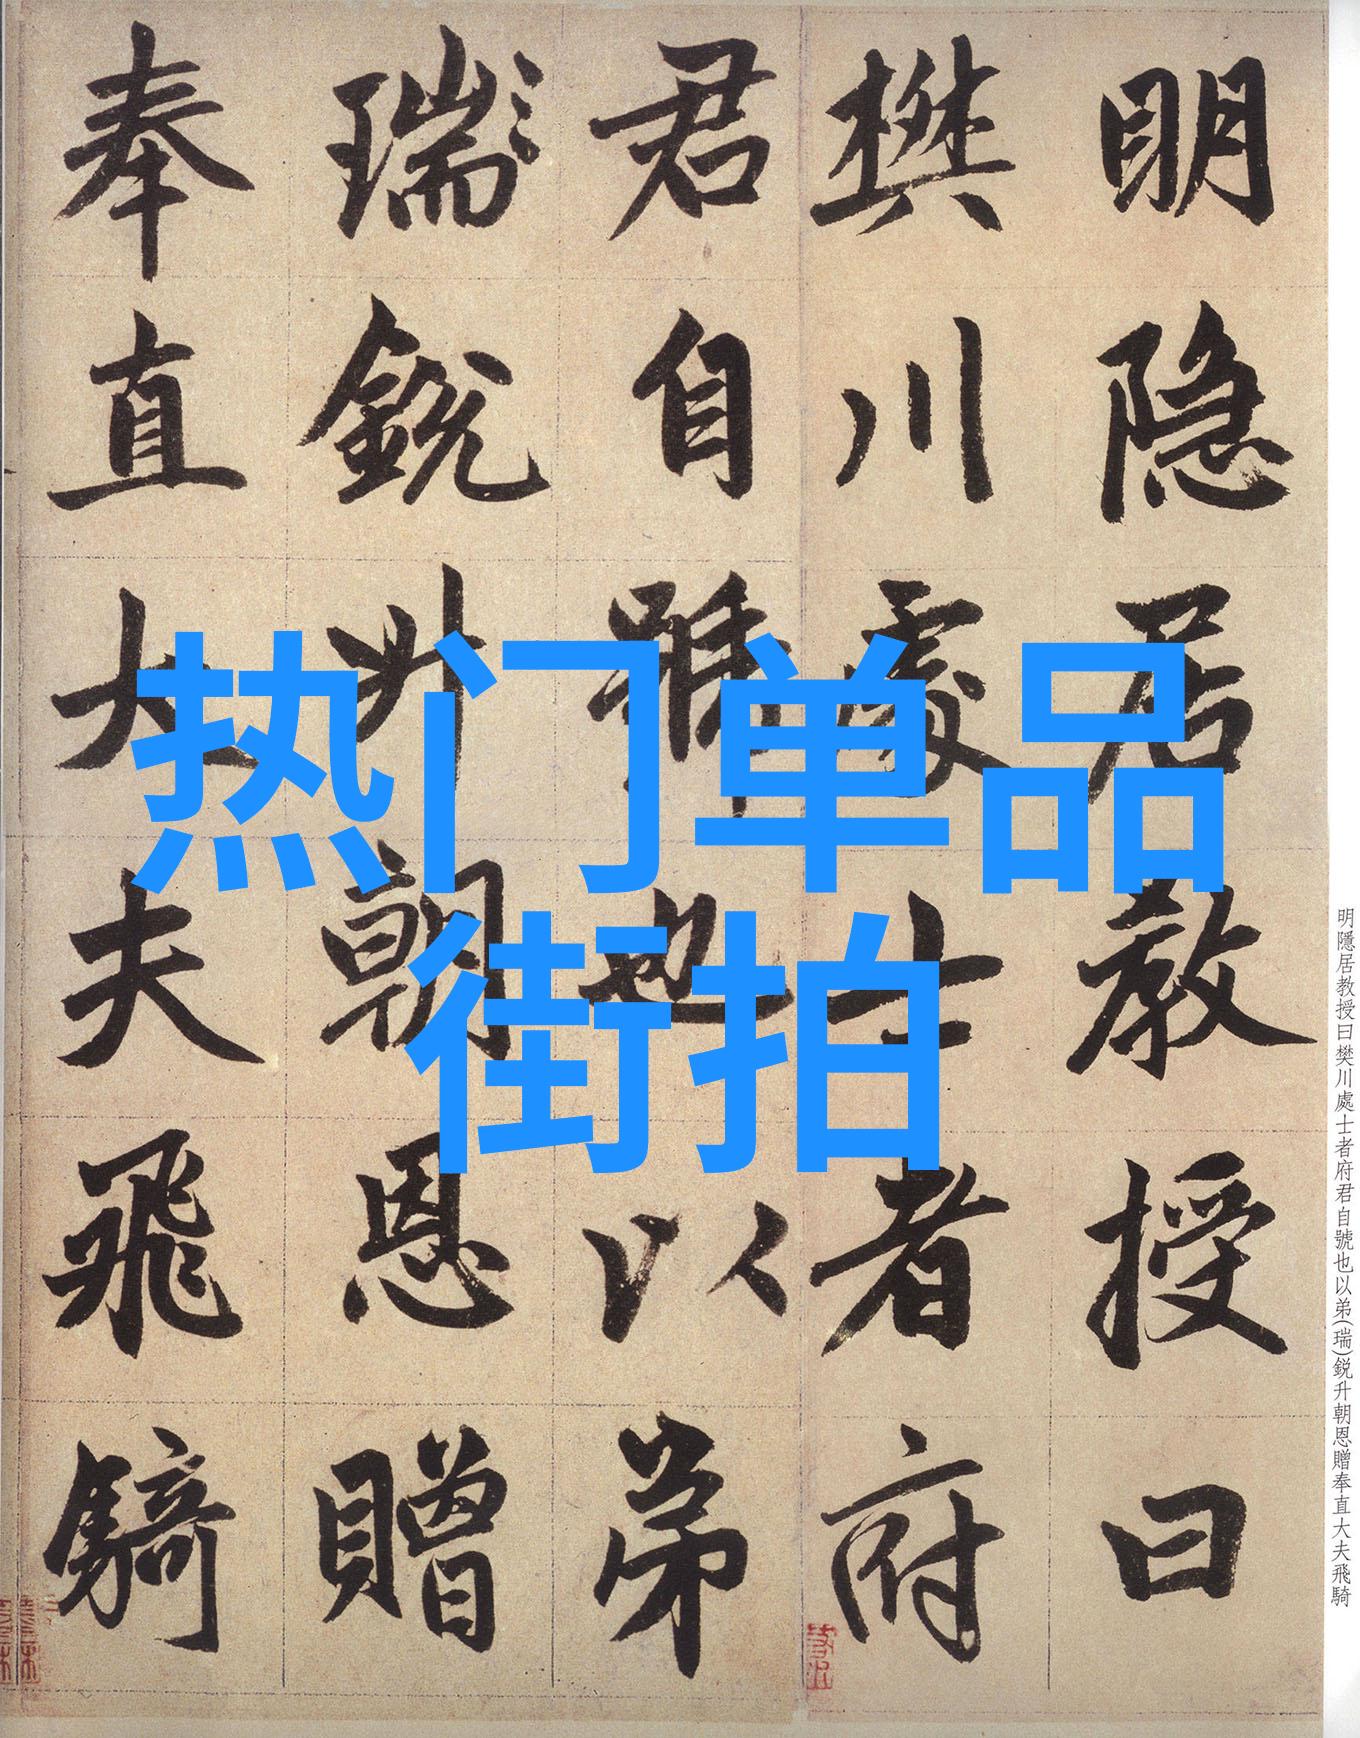 明隐居教授曰
樊川處士者府
君自號也以弟
瑞銳升朝恩贈
奉直大夫飛騎
热门单品
街拍
明隱居教授曰樊川處士者府君自號也以弟(瑞)銳升朝恩贈奉直大夫飛騎